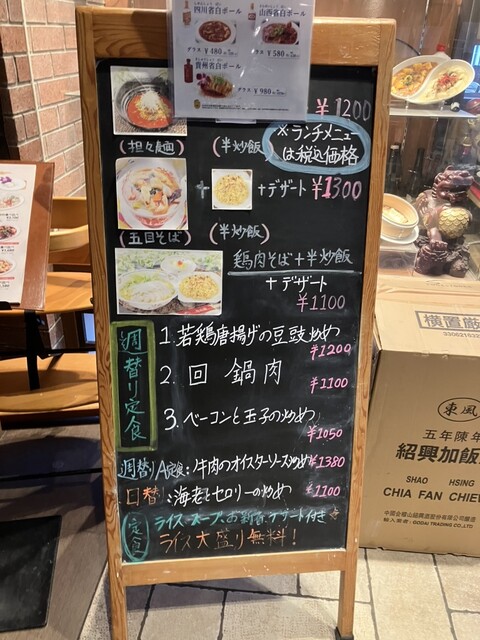 四川省白ボール
グラス ¥480
山西省白ボール
グラス ¥580
貴州省白ボール
グラス ¥980
¥1200
(担々麺)
(半炒飯)
※ランチメニュー
は税込価格
+
+デザート ¥1300
(五目そば)
(半炒飯)
鶏肉そば+半炒飯
+デザート
¥1100
週替り定食
1.若鶏唐揚げの豆豉炒め
¥1200
2.回鍋肉
¥1100
3.ベーコンと玉子の炒め
¥1050
週替りA定食:牛肉のオイスターソース炒め ¥1380
日替:海老とセロリーの炒め ¥1100
定食
ライス、スープ、お新香、デザート付き☆
ライス大盛り無料!
横置厳
東風
五年陳年
紹興加飯
SHAO HSING
CHIA FAN CHIEW